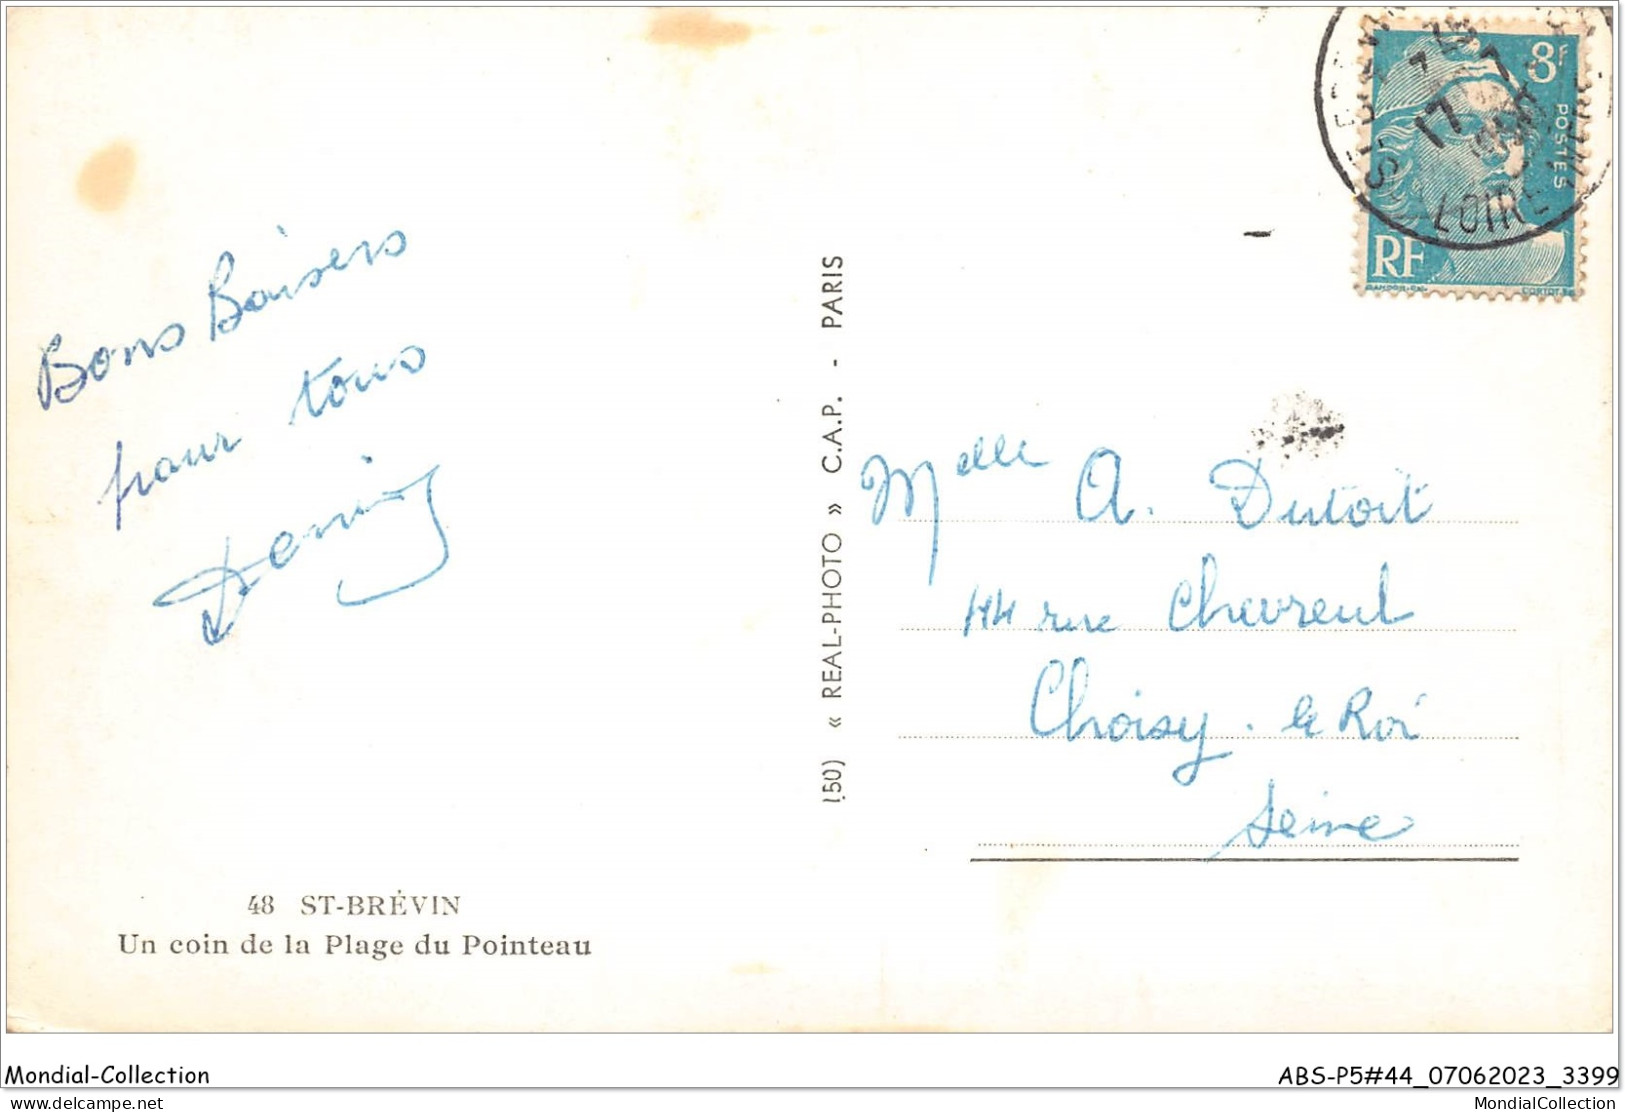 Bons Baisers
pour tous
8F
POSTES
RF
ST
LOIRE
17
7
(50) « REAL-PHOTO » C.A.P. - PARIS
Melle A. Dutoit
44 rue Chevreul
Choisy-le Roi
Seine
48 ST-BRÉVIN
Un coin de la Plage du Pointeau
Mondial-Collection
ABS-P5#44_07062023_3399
www.delcampe.net
MondialCollection